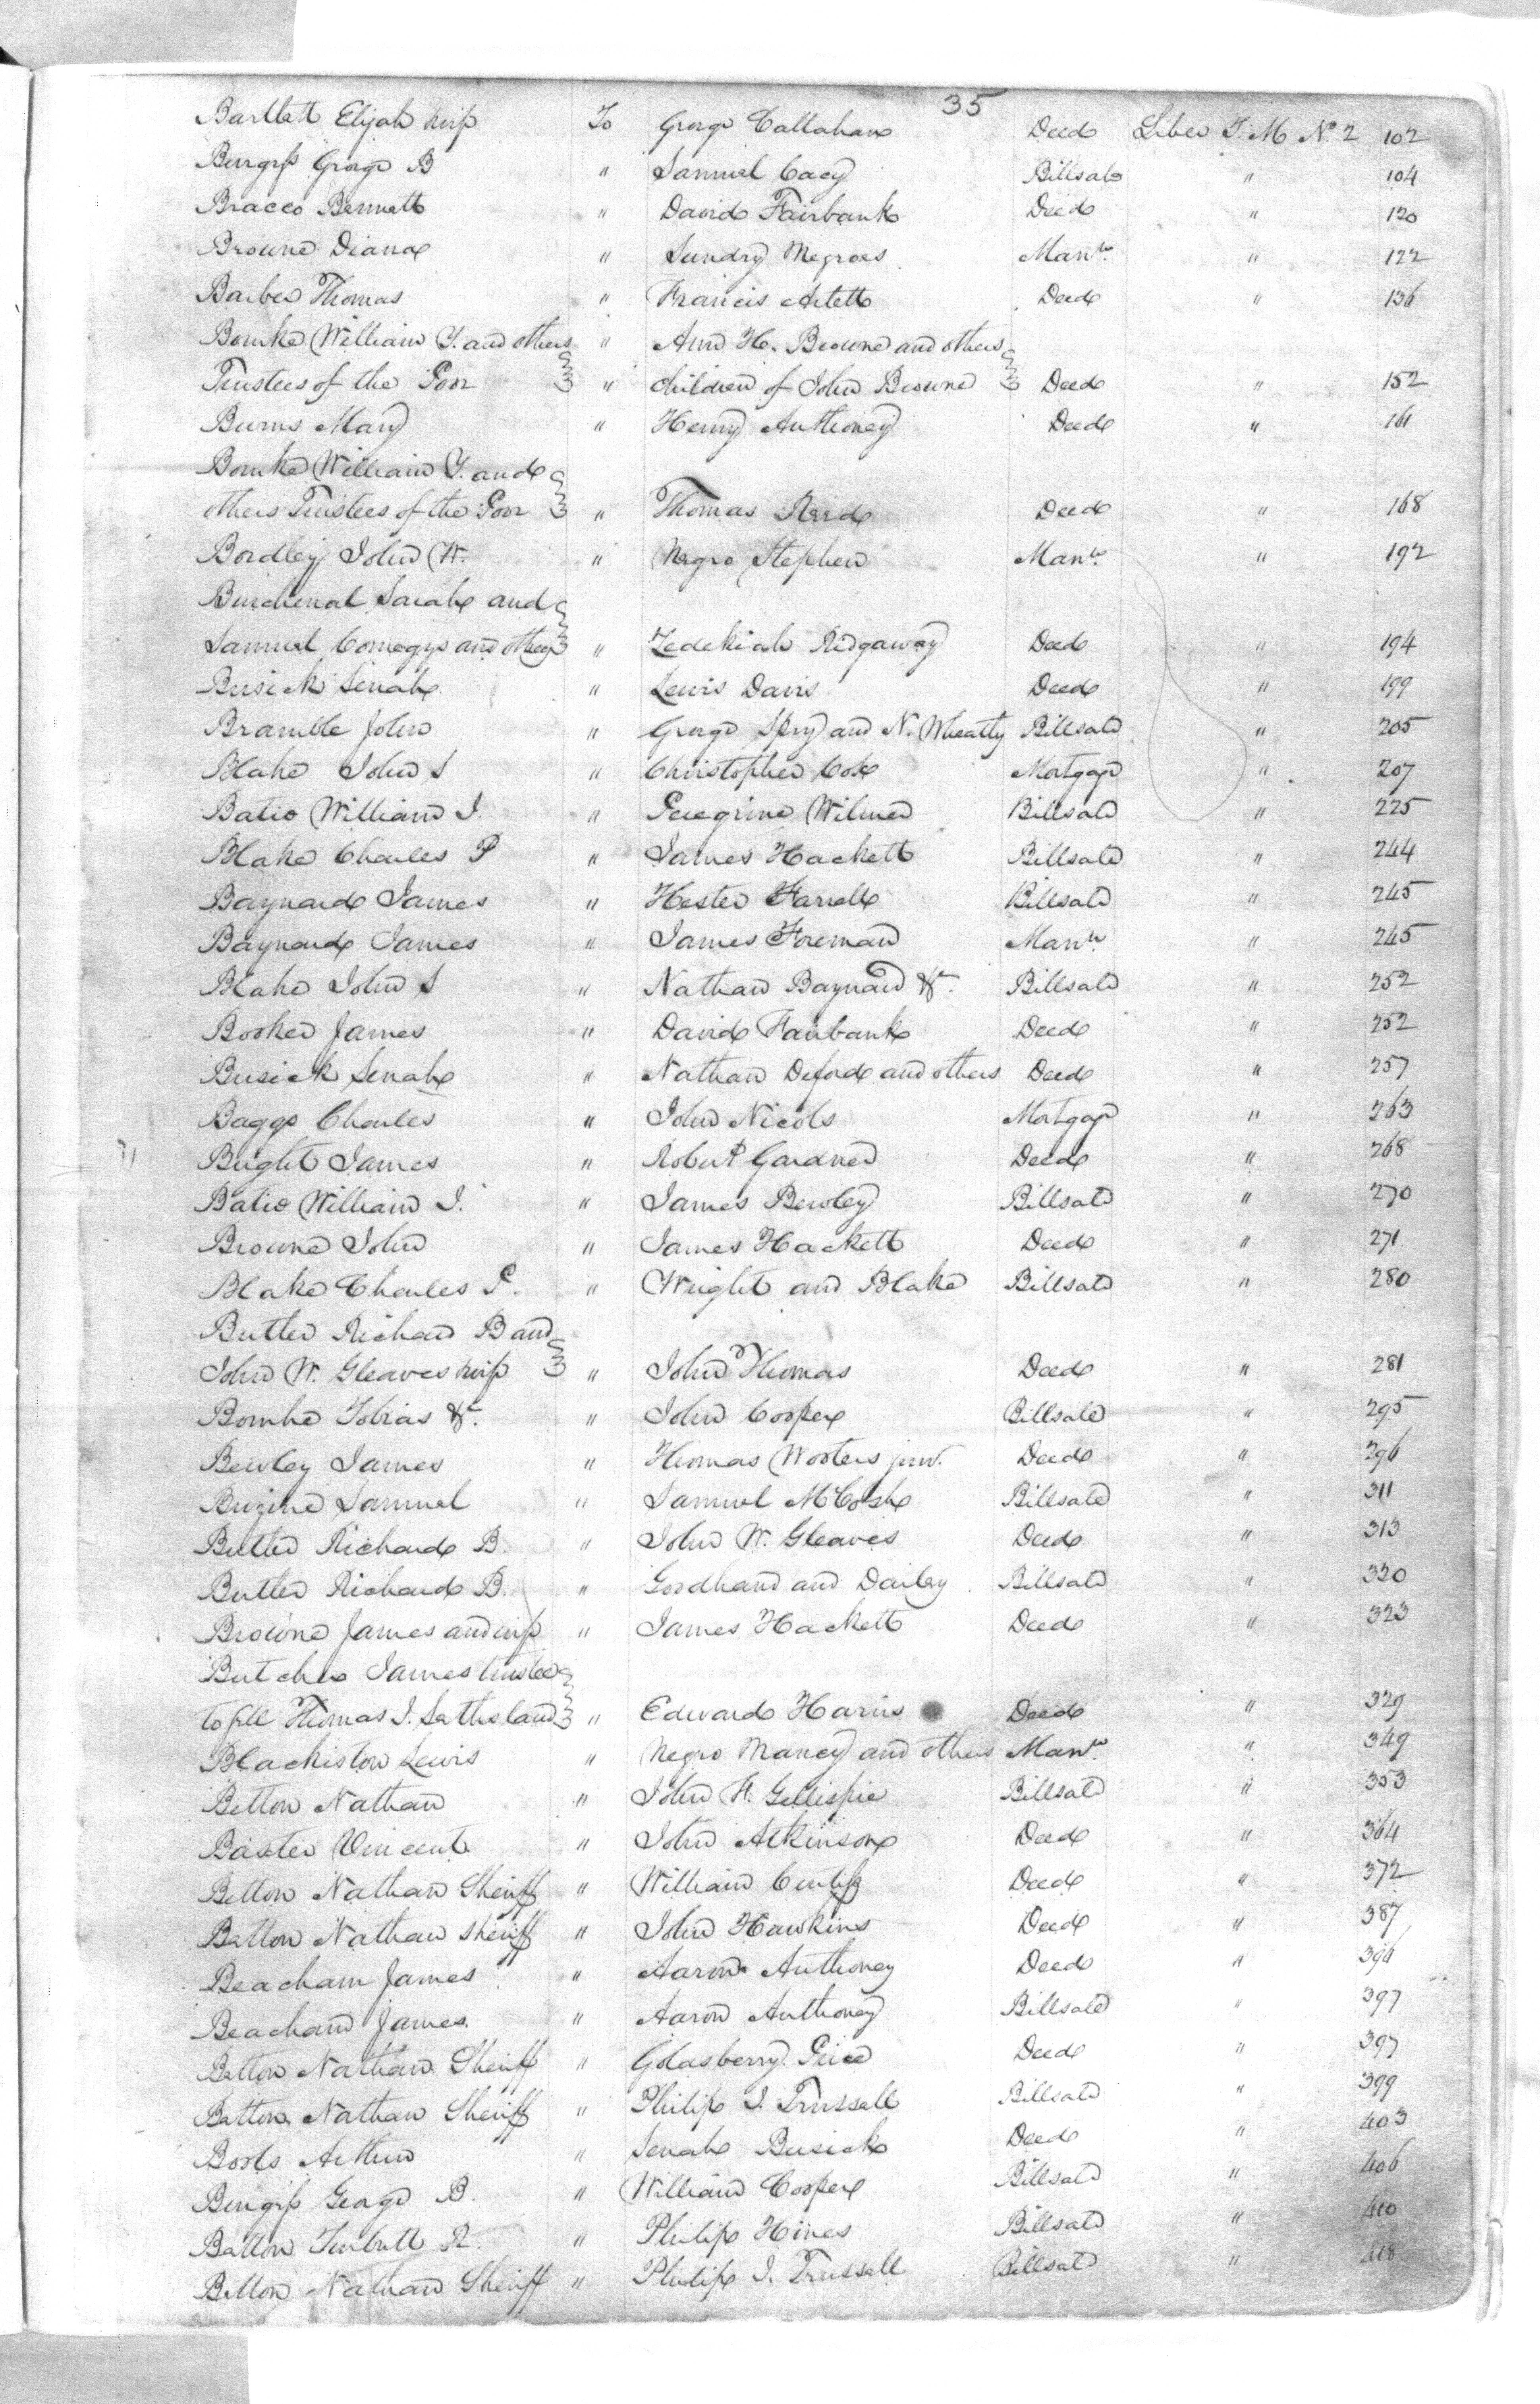 35
Bartlett Elijah To George Callahan Deed Liber T. M No. 2 102
Burgess George B " Samuel Cacy Billsale " 104
Bracco Bennett " David Fairbank Deed " 120
Browne Diana " Sundry Negroes Mann. " 122
Barber Thomas " Francis Arlett Deed " 136
Bourke William Y. and others " Ann H. Browne and others
Trustees of the Poor " children of John Browne Deed " 152
Burns Mary " Henry Anthoney Deed " 161
Bourke William Y. and
others Trustees of the Poor " Thomas Reed Deed " 168
Bordley John W. " Negro Stephen Mann. " 192
Burchenal Sarah and
Samuel Comegys and others " Zedekiah Ridgaway Deed " 194
Busick Senah " Lewis Davis Deed " 199
Bramble John " George Spry and N. Wheatly Billsale " 205
Blake John S " Christopher Cox Mortgage " 207
Batio William J. " Peregrine Wilmer Billsale " 225
Blake Charles P " James Hackett Billsale " 244
Baynard James " Hester Farrell Billsale " 245
Baynard James " James Foreman Mann. " 245
Blake John S " Nathan Baynard &c. Billsale " 252
Booker James " David Fairbank Deed " 252
Busick Senah " Nathan Deford and others Deed " 257
Baggs Charles " John Nicols Mortgage " 263
Bright James " Robert Gardner Deed " 268
Batio William J. " James Bewley Billsale " 270
Browne John " James Hackett Deed " 271
Blake Charles P. " Wright and Blake Billsale " 280
Butler Richard B and
John W. Gleaves " John Thomas Deed " 281
Bourke Tobias &c. " John Cooper Billsale " 295
Bewley James " Thomas Wooters junr. Deed " 296
Samuel " Samuel McCosh Billsale " 311
Butler Richard B. " John W. Gleaves Deed " 313
Butler Richard B. " Goodhand and Dailey Billsale " 320
Browne James and wife " James Hackett Deed " 323
Butcher James trustee
to sell Thomas J. land " Edward Harris Deed " 329
Blackiston Lewis " Negro Nancy and others Mann. " 349
Betton Nathan " John H. Gillispie Billsale " 353
Baxter Vincent " John Atkinson Deed " 364
Betton Nathan Sheriff " William Deed " 372
Betton Nathan sheriff " John Hawkins Deed " 387
Beacham James " Aaron Anthoney Deed " 396
Beacham James " Aaron Anthoney Billsale " 397
Betton Nathan Sheriff " Goldsberry Price Deed " 397
Betton Nathan Sheriff " Philip J. Trussell Billsale " 399
Boots Arthur " Senah Busick Deed " 403
Burgess George B. " William Cooper Billsale " 406
Betton Turbutt R. " Philip Hines Billsale " 410
Betton Nathan Sheriff " Philip J. Trussell Billsale " 418